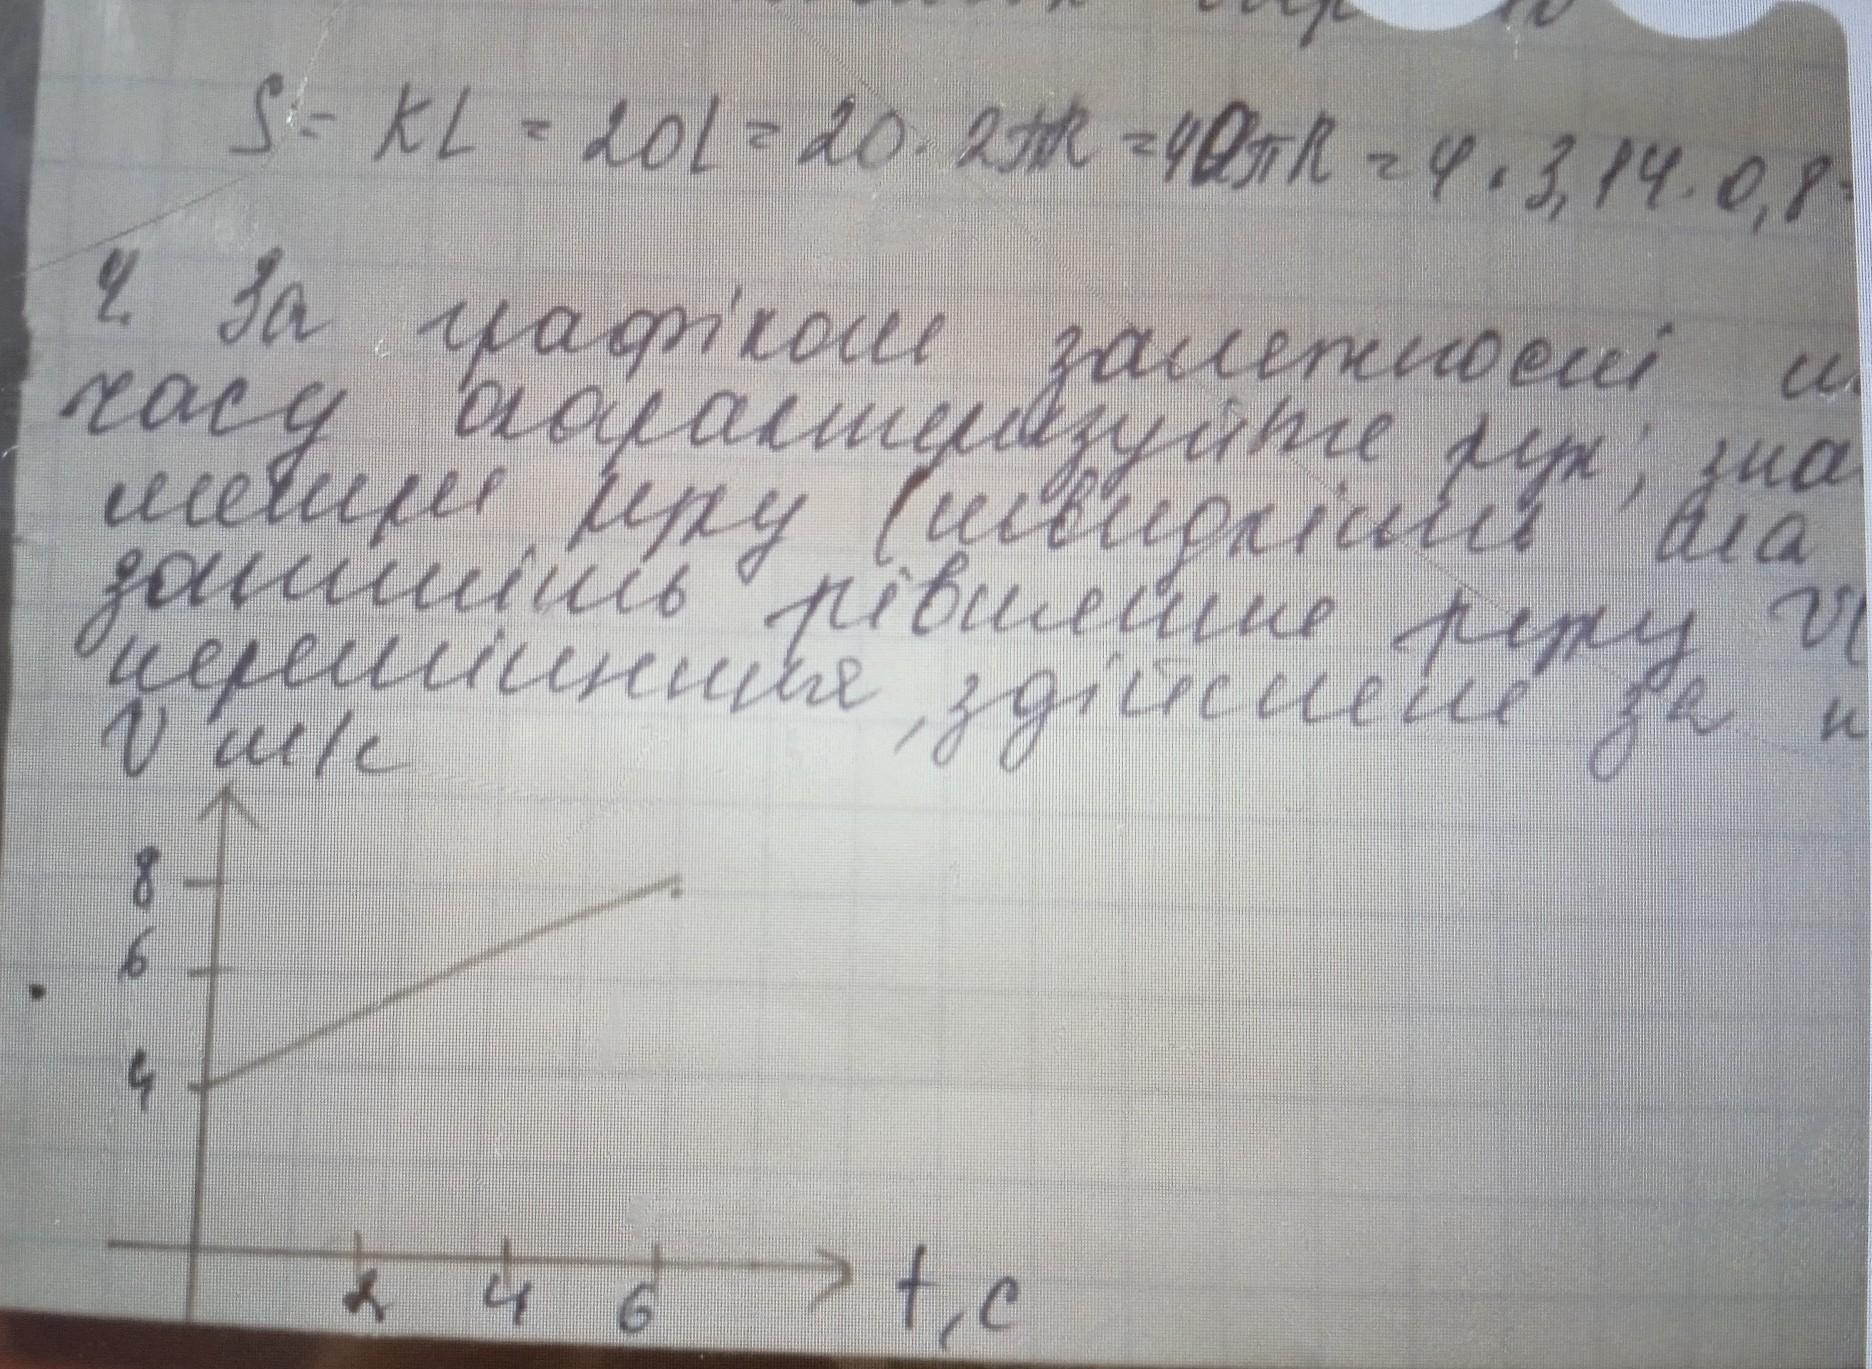 S = KL = 20L = 20 · 2πR = 40πR = 4 · 3,14 · 0,8
4. За графіком залежності
часу охарактеризуйте рух,
метри руху (швидкість
запишіть рівняння руху
переміщення, здійснене за
V м/с
8
6
4
2 4 6 t, c